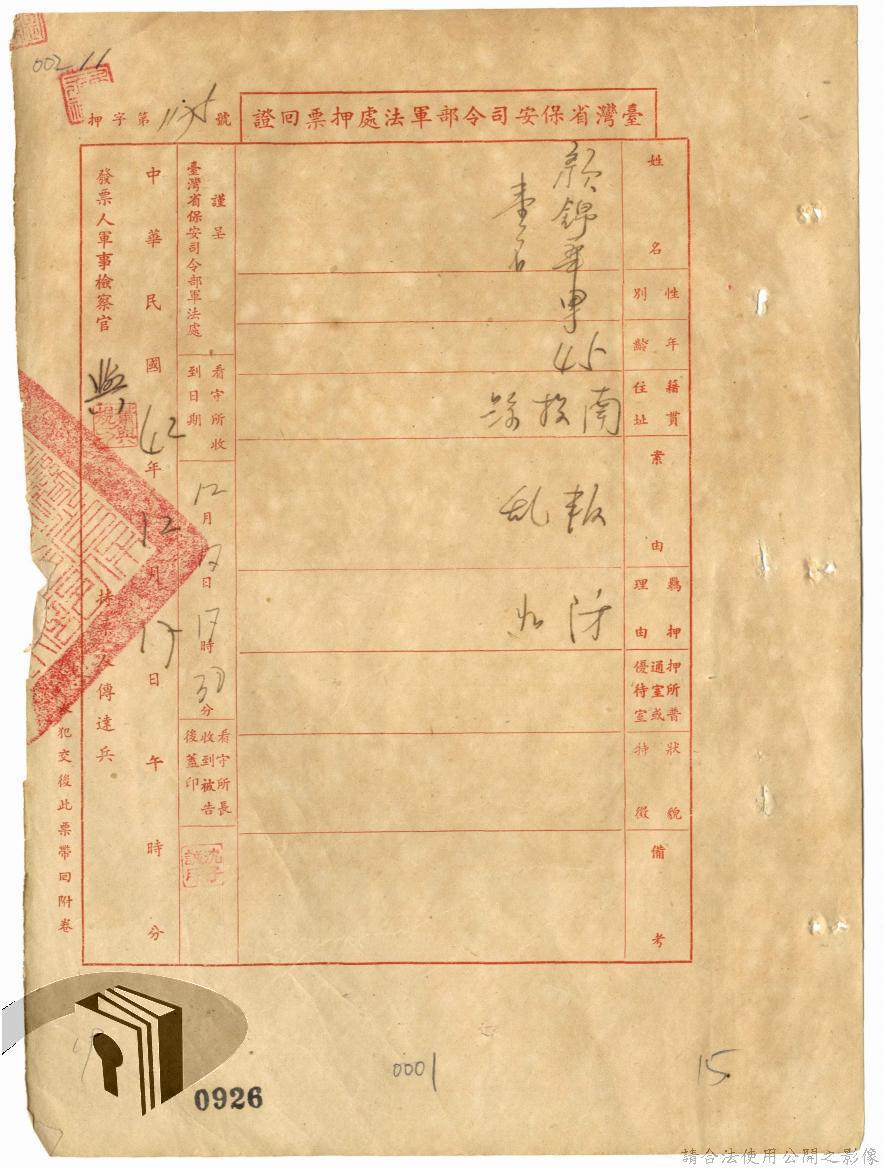 002 11
臺灣省保安司令部軍法處押票回證
押字第 號
姓名
顏錦華
性別
男
年齡
45
籍貫
住址
南投縣
案由
叛乱
羈押
理由
押所普
通室或
優待室
狀貌
特徵
備考
謹呈
臺灣省保安司令部軍法處
看守所收
到日期
12月 日17時30分
看守所長
收到被告
後蓋印
中華民國42年12月17日午時分
發票人軍事檢察官
傳達兵
犯交後此票帶回附卷
0001
15
0926
請合法使用公開之影像